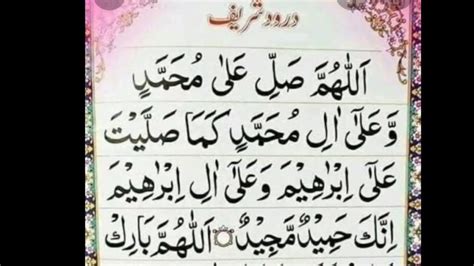 درود شریف
اَللّٰهُمَّ صَلِّ عَلٰى مُحَمَّدٍ
وَّعَلٰٓى اٰلِ مُحَمَّدٍ كَمَا صَلَّيْتَ
عَلٰٓى اِبْرٰهِيْمَ وَعَلٰٓى اٰلِ اِبْرٰهِيْمَ
اِنَّكَ حَمِيْدٌ مَّجِيْدٌ ۝ اَللّٰهُمَّ بَارِكْ